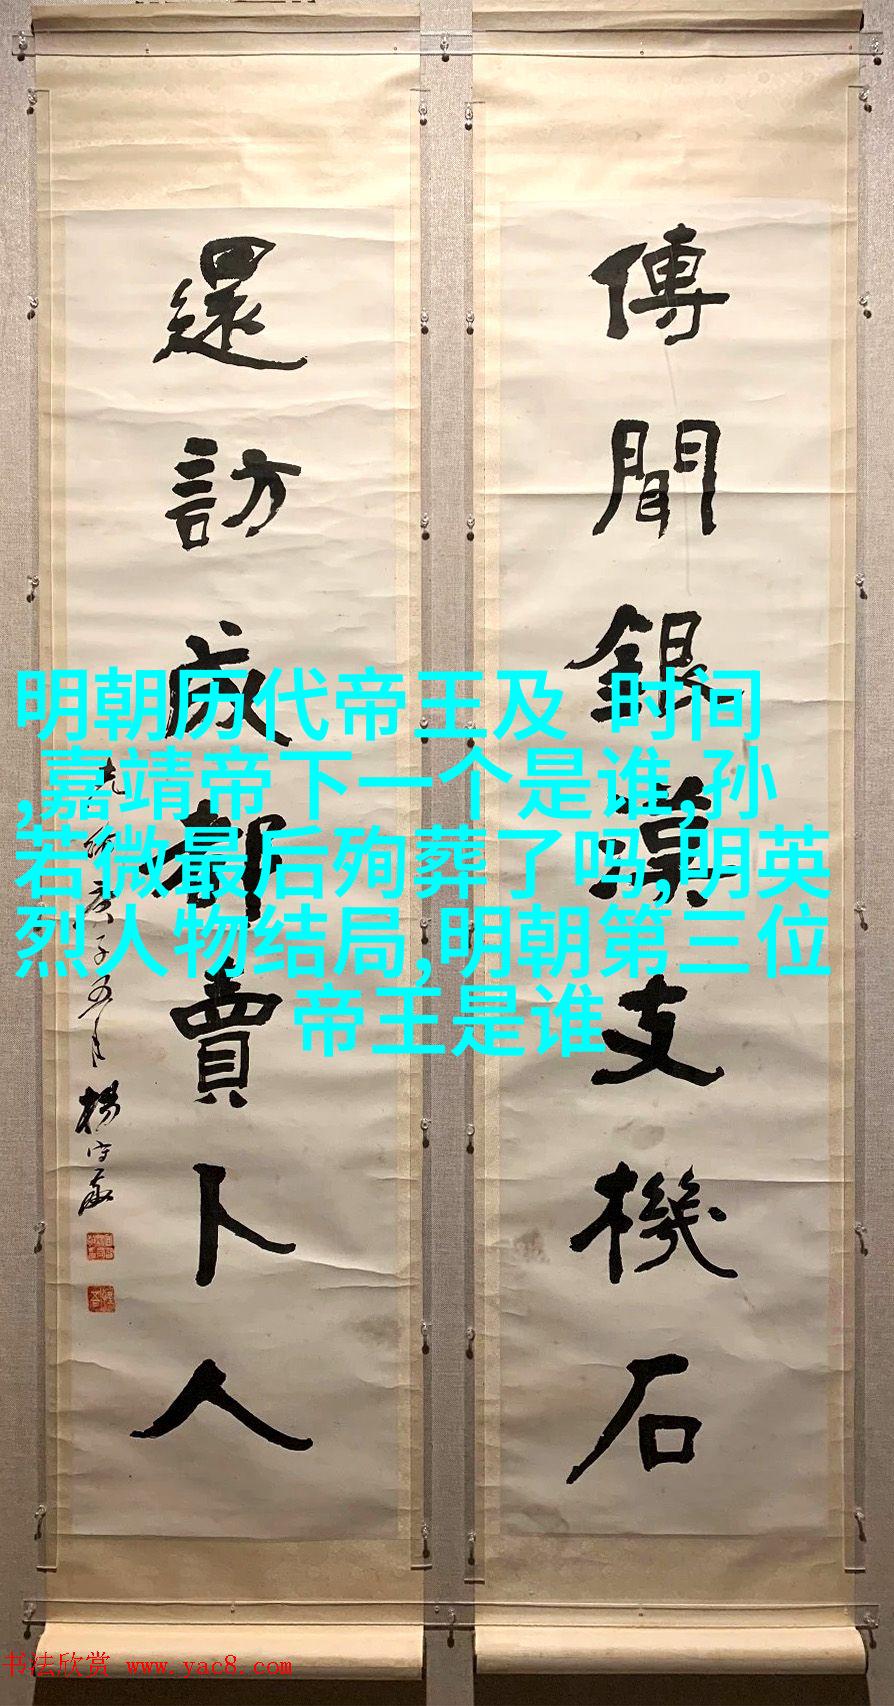 傳聞銀漢支機石
還訪成都賣卜人
光緒庚子五月 楊守敬
明朝历代帝王及 时间
,嘉靖帝下一个是谁,孙
若微最后殉葬了吗,明英
烈人物结局,明朝第三位
帝王是谁
书法欣赏 www.yac8.com